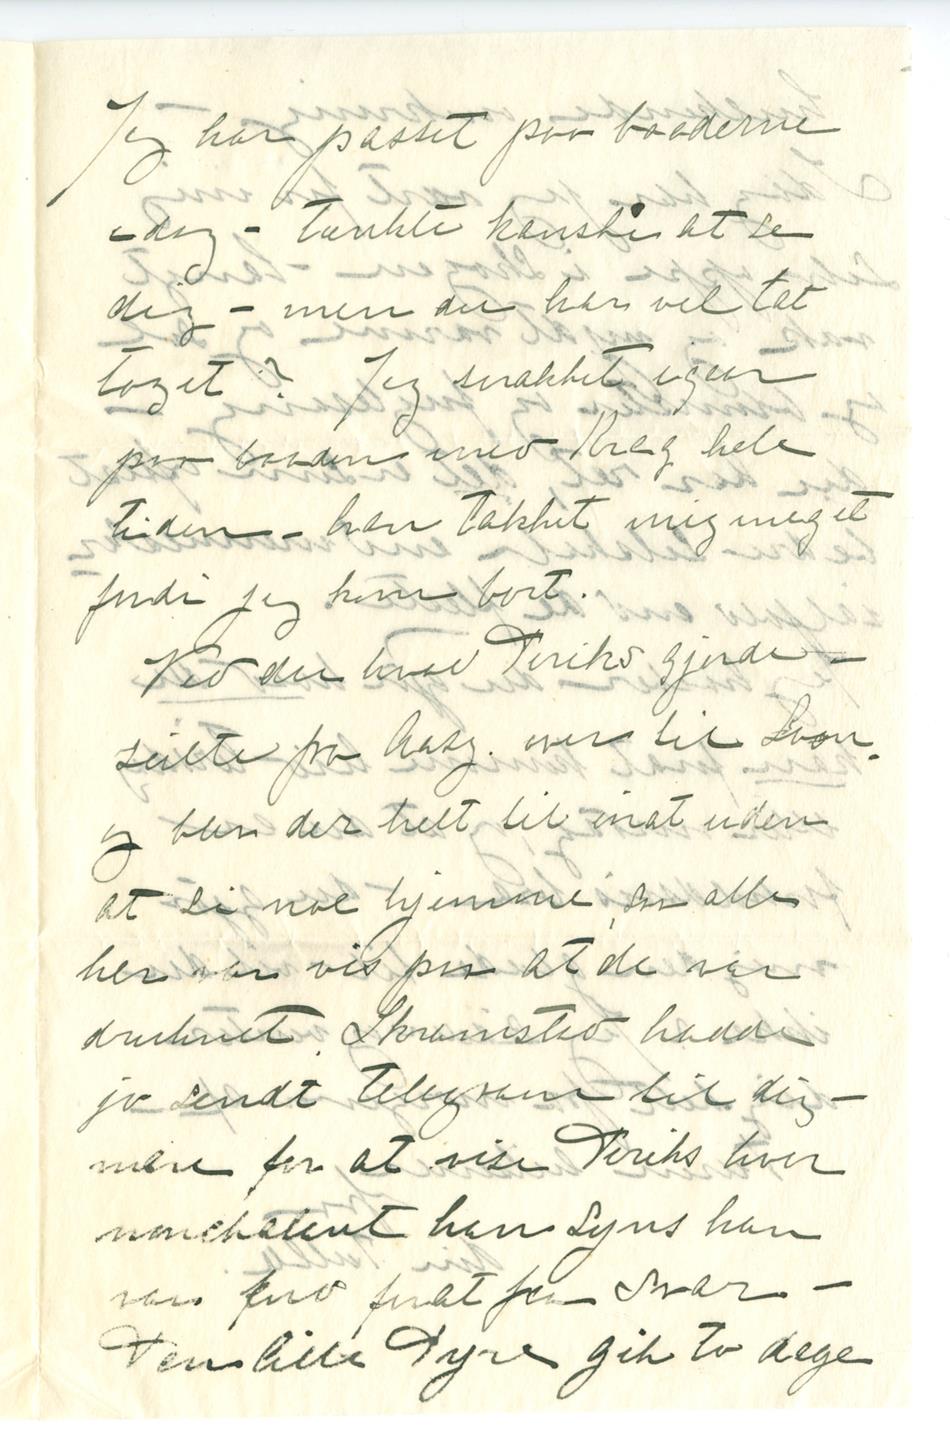 Jeg har passet paa baaderne
idag - tænkte kanske at se
dig - men du har vel tat
toget? Jeg snakket igaar
paa baaden med Krag hele
tiden - han takket mig meget
fordi jeg kom bort.
Ved du hvad Diriks gjorde -
seilte fra Aasg. over til
og blev der helt til inat uden
at si noe hjemme, saa alle
her var vis paa at de var
druknet. Skramstad hadde
jo sendt telegram til dig -
mere for at vise Diriks hvor
nonchalent han syns han
var end forat faa svar -
Den lille Dyre gik to dage